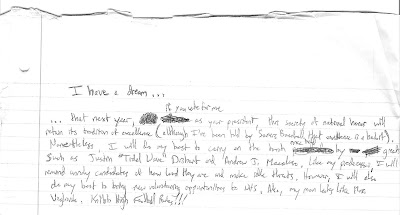 I have a dream...
if you vote for me
... that next year, as your president, this society of national honor will
retain its tradition of excellence (although I've been told by Soviez Baseball that excellence is a habit).
Nonetheless, I will do my best to carry on the torch once held by great
such as Justin "Tidal Wave" and Andrew J. Like my predecessors I will
remind unruly candidates of how loud they are and make idle threats, However, I will also
do my best to bring new volunteering opportunities to NHS, Also, my man looks like Mrs.
High Football Rules!!!